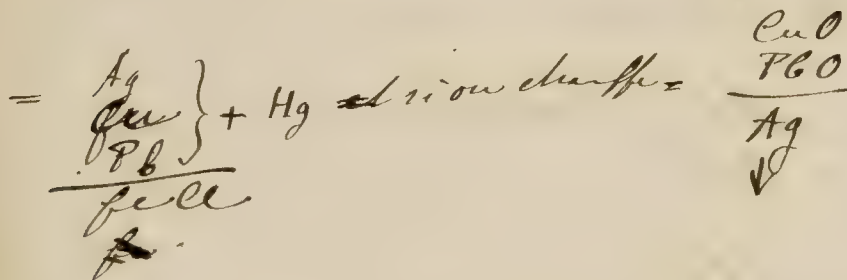 = Ag Cu Pb } + Hg et si on chauffe = CuO PbO
Ag
feCl